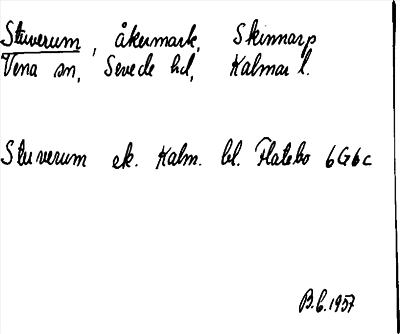 Stuverum, åkermark, Skinnarp
Vena sn, Sevede hd, Kalmar l.
Stuverum ek. Kalm. bl. Flatebo 6G6c
B.C. 1957